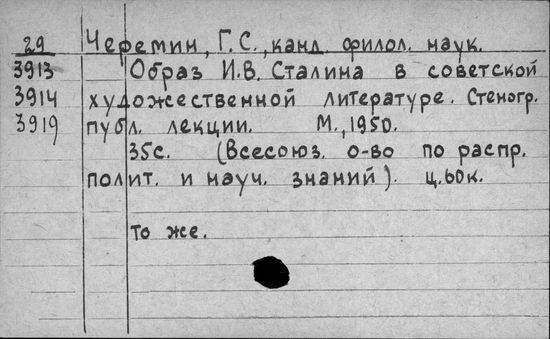 29 Черемин, Г.С., канд. филол. наук.
3913 Образ И.В. Сталина в советской
3914 художественной литературе. Стеногр.
3919 публ. лекции. М., 1950.
35с. (Всесоюз. о-во по распр.
полит. и науч. знаний). ц.60к.
То же.